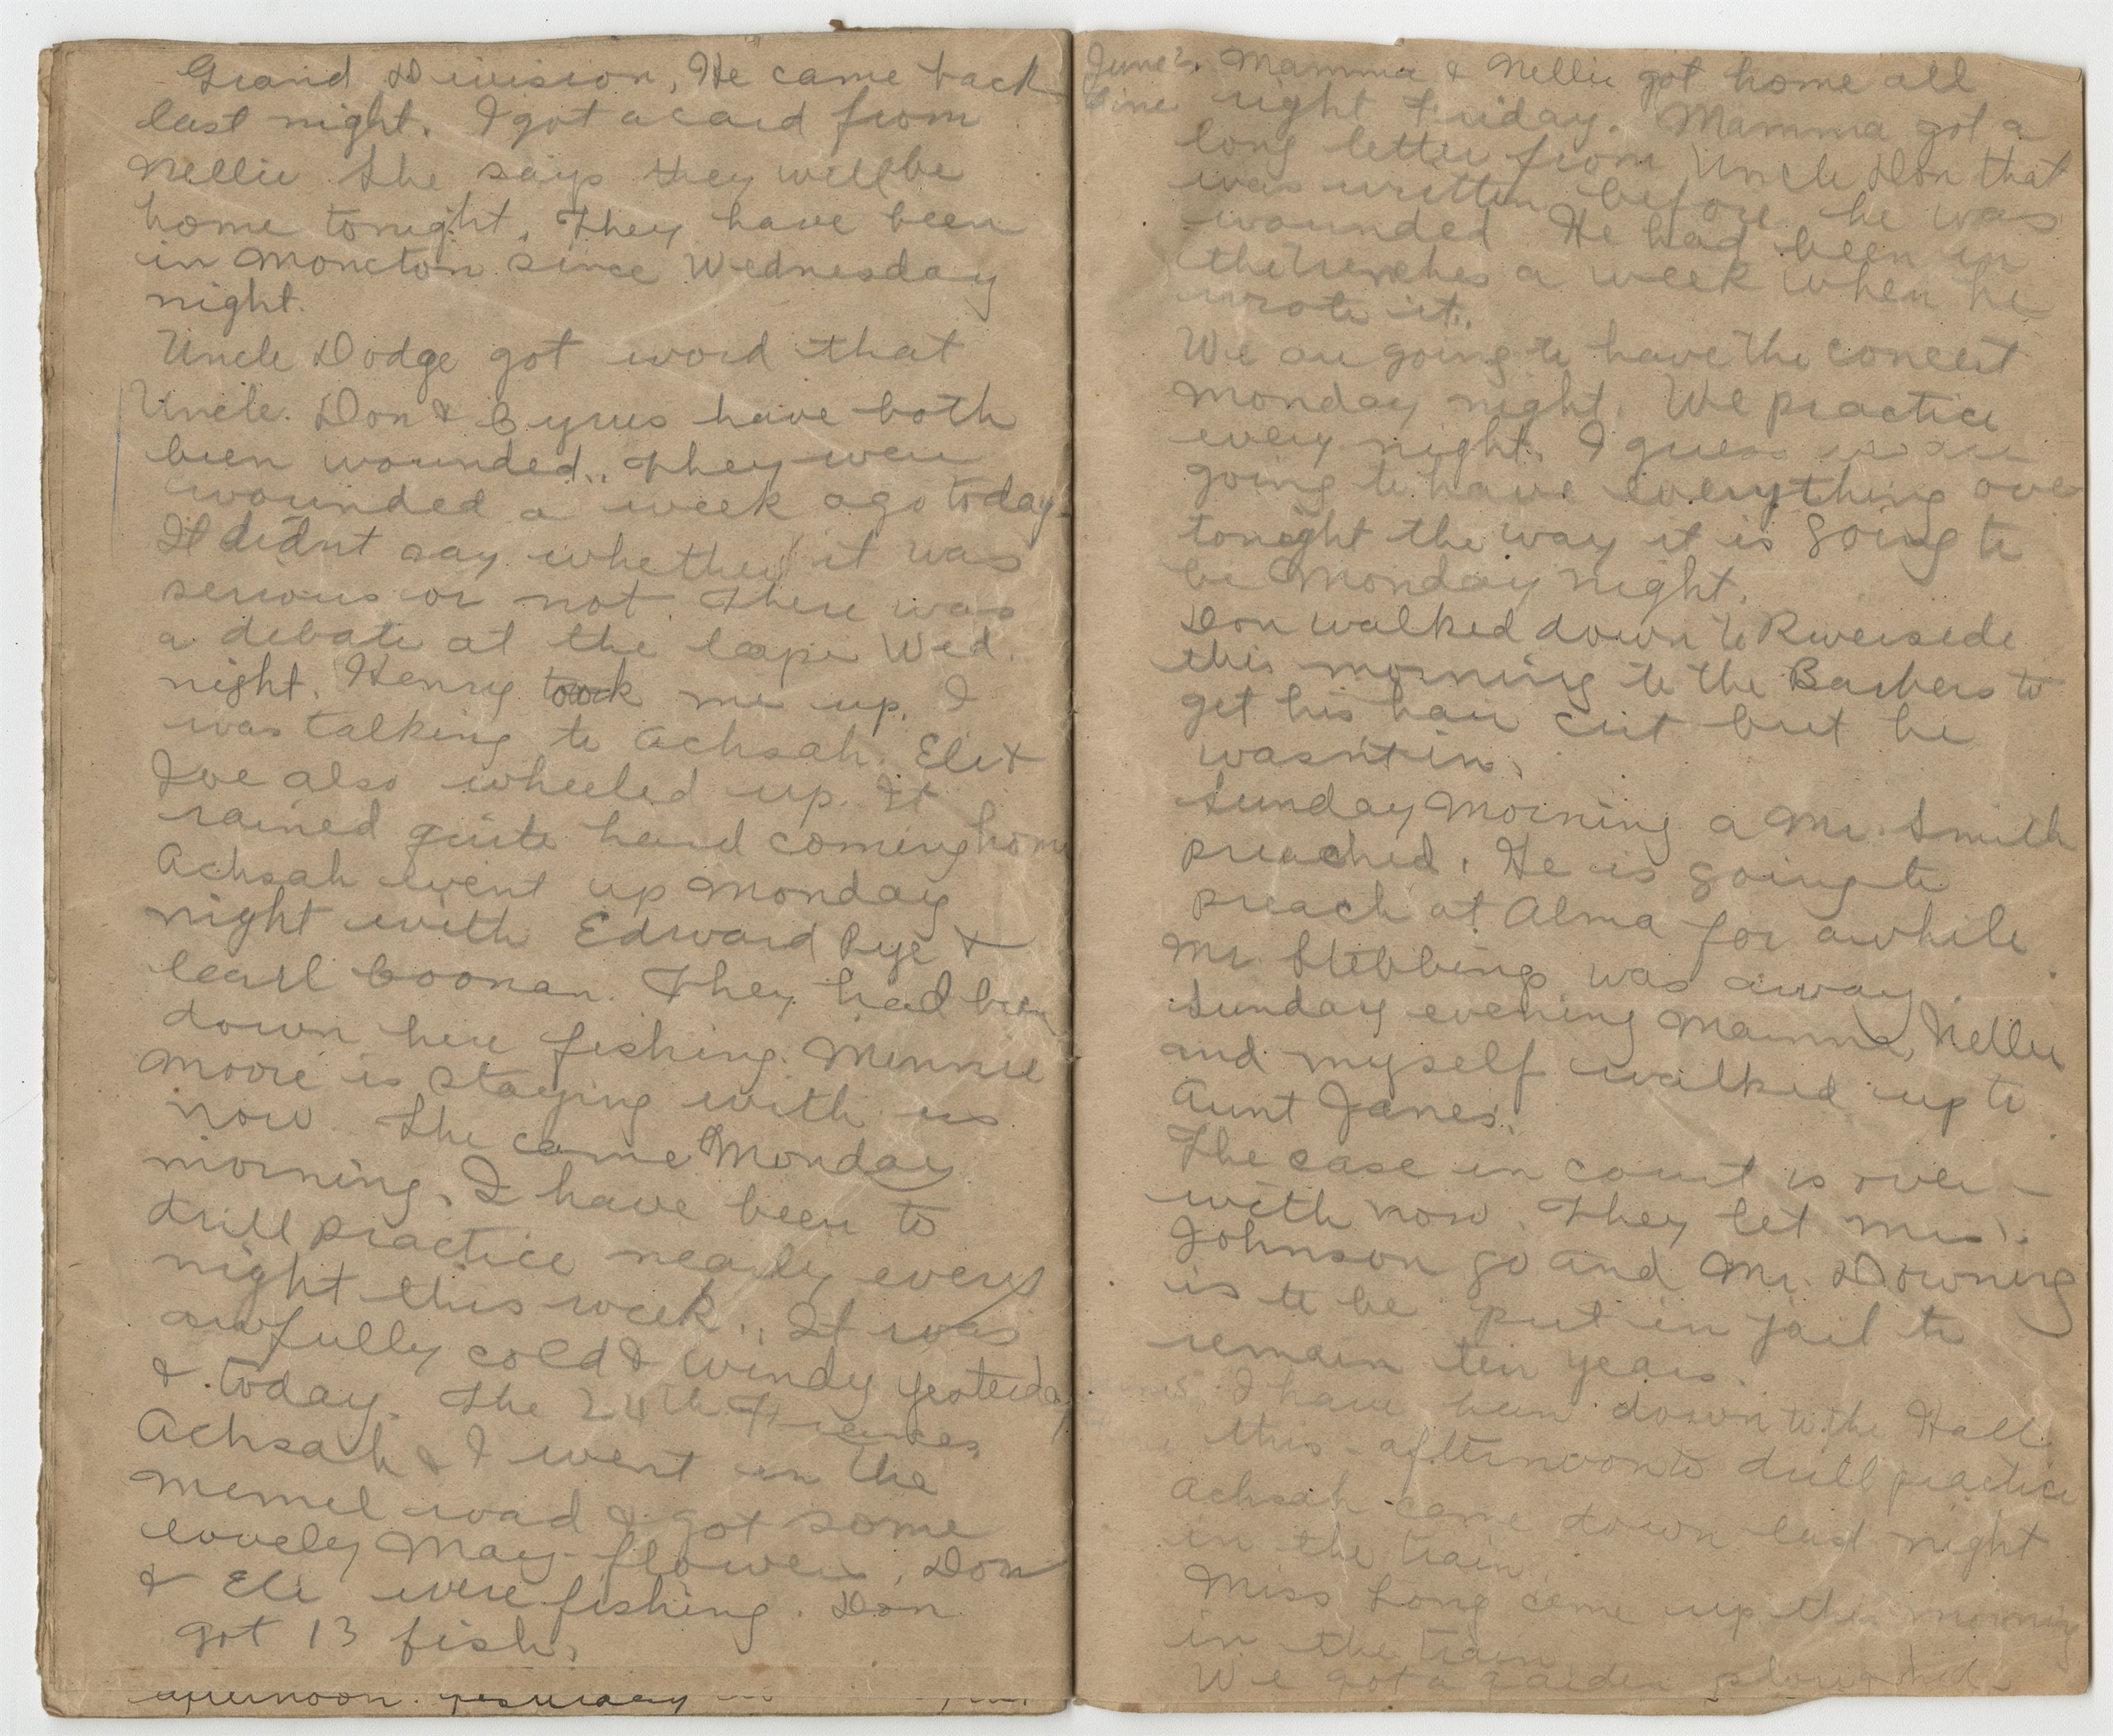 Grand Division, He came back
last night. I got a card from
Nellie She says they will be
home tonight. They have been
in Moncton since Wednesday
night.
Uncle Dodge got word that
Uncle Don & Cyrus have both
been wounded. They were
wounded a week ago today
It didnt say whether it was
serious or not. There was
a debate at the Cape Wed.
night. Henry took me up. I
was talking to Achsah. Eli &
Joe also wheeled up. It
rained quite hard coming home
Achsah went up Monday
night with Edward Pye &
Coonan. They had been
down here fishing. Minnie
Moore is staying with us
now. She came Monday
morning. I have been to
drill practice nearly every
night this week. It was
awfully cold & windy yesterday
& today. The 24th Frances
Achsah & I went in the
Memel road & got some
lovely May-flowers. Don
& Eli were fishing. Don
got 13 fish.
afternoon yesterday
June 2. Mamma & Nellie got home all
right Friday. Mamma got a
long letter from Uncle Don that
was written before he was
wounded He had been in
the trenches a week when he
wrote it.
We are going to have the concert
Monday night. We practice
every night. I guess we are
going to have everything over
tonight the way it is going to
be Monday night.
Don walked down to Riverside
this morning to the Barbers to
get his hair cut but he
wasn't in.
Sunday Morning a Mr. Smith
preached. He is going to
preach at Alma for awhile
Mr. Stebbings was away.
Sunday evening Mamma, Nellie
and myself walked up to
Aunt Janes.
The case in court is over
with now. They let Mrs.
Johnson go and Mr. Downing
is to be put in jail to
remain ten years.
I have been down to the Hall
this afternoon to drill practice
Achsah came down last night
in the train.
Miss Long came up this morning
in the train
We got a garden ploughed